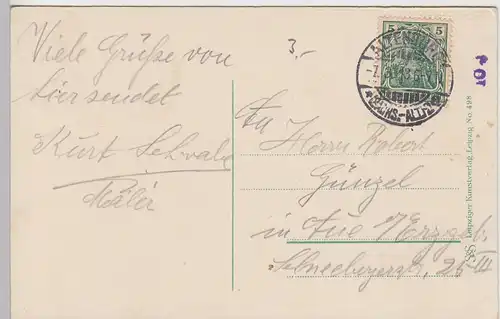 Viele Grüße von
hier sendet
Kurt Schwale
Maler
3.-
5 5
ALTENBURG
* SACHS.-ALTBG.
An
Herrn Robert
Günzel
in Aue i/Erzgeb.
Schneebergerstr. 25 III
Leipziger Kunstverlag Leipzig No. 498